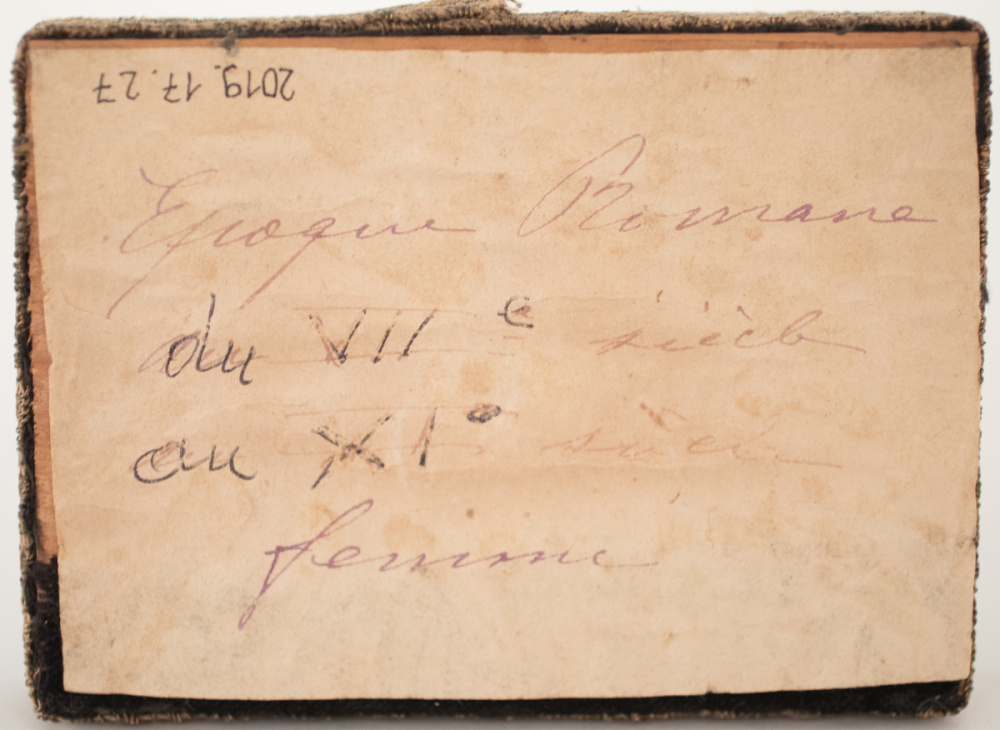 2019.17.27
Epoque Romane
du VII e siècle
au XI e siècle
femme